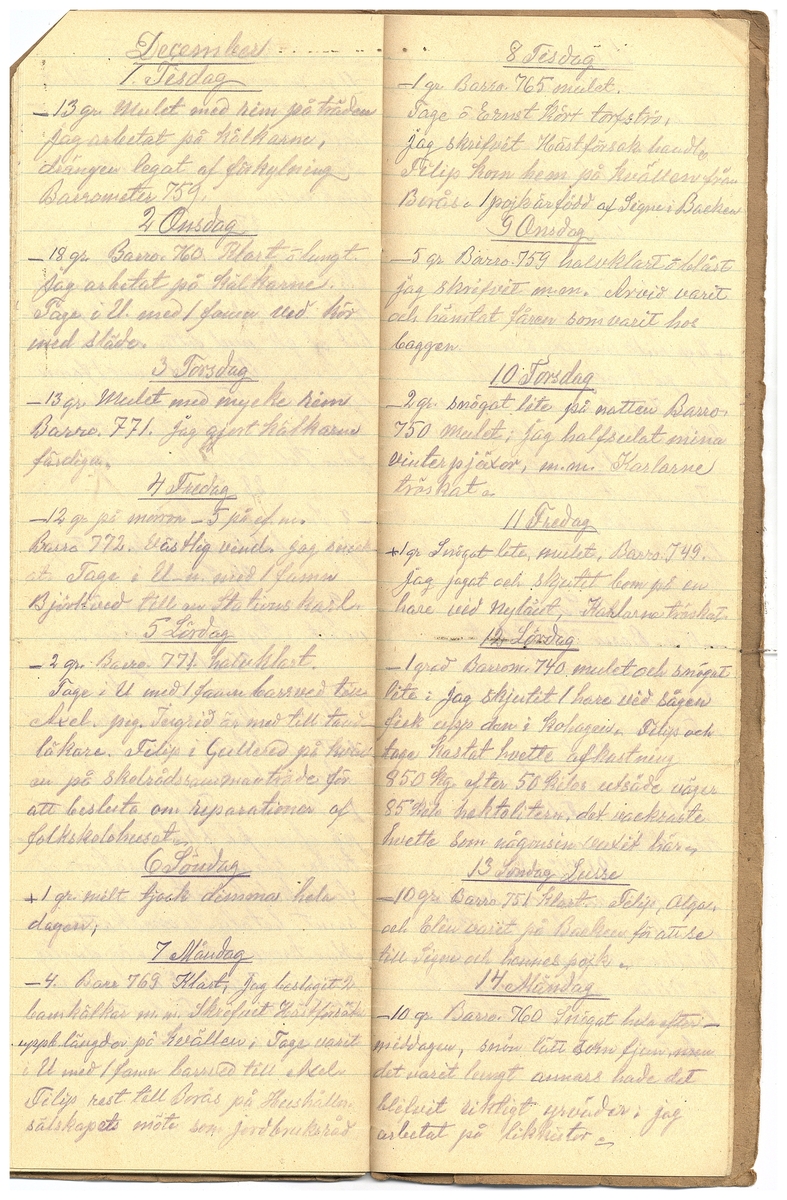 December
1. Tisdag
-13 gr. Mulet med rim på träden
jag arbetat på kälkarne,
drängen legat af förkylning
Barrometer 759.
2 Onsdag
-18 gr. Barro. 760. Klart ö lungt.
Jag arbetat på kälkarne.
Tage i U. med 1 famn ved kör
med släde.
3 Torsdag
-13 gr. Mulet med mycke rim
Barro. 771. Jag gjort kälkarne
färdiga.
4 Fredag
-12 gr på morron -5 på ef.m.
Barro 772. Västlig vind. jag
at. Tage i U-n. med 1 famn
Björkved till en Stations karl.
5 Lördag
-2 gr. Barro. 771 halvklart.
Tage i U med 1 famn barrved till
Axel. Ingrid är med till tand
läkare. Filip i Gullered på kväll
en på skolrådssammanträde för
att besluta om reparationer af
folkskolehuset.
6 Söndag
+1 gr. milt tjock dimma hela
dagen,
7 Måndag
-4. Barr 769 Klart, Jag beslagit 2
barnkälkar m.m. Skrifvit Hästförsäk
uppb.längder på kvällen, Tage varit
i U med 1 famn barrved till Axel
Filip rest till Borås på Hushålln.
sälskapets möte som jordbruksråd
8 Tisdag
-1 gr. Barro. 765 mulet.
Tage ö Ernst kört torfströ,
jag skrifvit Hästförsäk handl.
Filip kom hem på kvällen från
Borås. 1 pojk är född af Signe i Backen
9 Onsdag
-5 gr Barro. 759 halvklart ö blåst
jag skrifvit m.m. Arvid varit
och hämtat fåren som varit hos
baggen
10 Torsdag
-2 gr. snögat lite på natten Barro.
750 mulet; jag halfsulat mina
vinterpjäxor, m.m. Karlarne
tröskat.
11 Fredag
+1 gr Snögat lite, mulet, Barro. 749.
jag jagat och skjutet bom på en
hare vid Nylöst, Karlarne tröskat.
12 Lördag
-1 grad Barrom. 740 mulet och snögat
lite i jag skjutit 1 hare ved sågen
fick upp den i kohagen. Filip och
Tage kastat hvette afkastning
850 kg efter 50 kilos utsäde väger
85 kilo hektolitern, det vackraste
hvette som någonsin växit här.
13 Söndag Lusse
-10 gr. Barro. 751 Klart. Filip, Olga,
och Elin varit på Backen för att se
till Signe och hennes pojk.
14 Måndag
-10 gr. Barro. 760 Snögat hela efter-
middagen, snön lätt som fjun, men
det varit lungt annars hade det
blifvit riktigt urväder; jag
arbetat på likkistor.